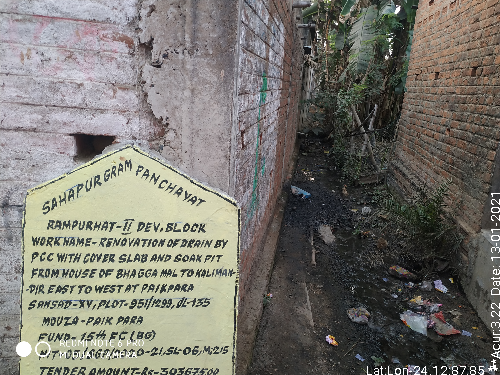 SAHAPUR GRAM PANCHAYAT
RAMPURHAT-II DEV. BLOCK
WORK NAME- RENOVATION OF DRAIN BY
PCC WITH COVER SLAB AND SOAK PIT
FROM HOUSE OF BHAGGA MAL TO KALIMAN-
DIR EAST TO WEST AT PAIKPARA
SANSAD-XV, PLOT-951/1299, JL-135
MOUZA-PAIK PARA
FUND-15TH FC (BG)
REDMI NOTE 6 PRO
MI DUAL CAMERA
-21, SL-06, M-215
TENDER AMOUNT-Rs-
Lat:Lon-24.12:87.85
Date. 13-01-2021